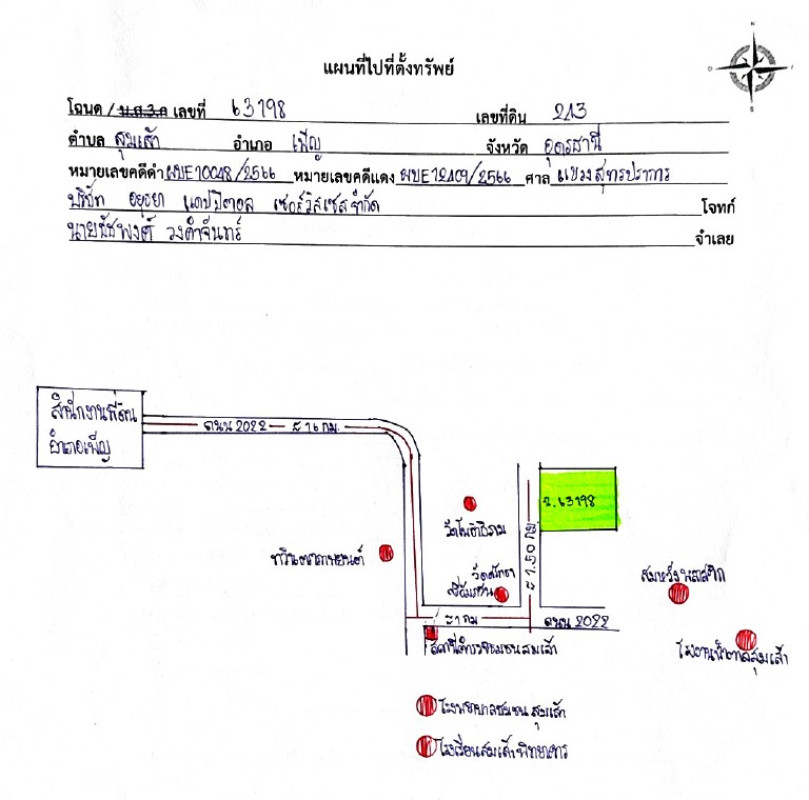 แผนที่ไปที่ตั้งทรัพย์
โฉนด / น.ส.3.ก เลขที่ 63198 เลขที่ดิน 213
ตำบล สุมเส้า อำเภอ เพ็ญ จังหวัด อุดรธานี
หมายเลขคดีดำ ผบE10048/2566 หมายเลขคดีแดง ผบE12409/2566 ศาล แขวงสมุทรปราการ
บริษัท อยุธยา แคปปิตอล เซอร์วิสเซส จำกัด โจทก์
นายชัชพงศ์ วงคำจันทร์ จำเลย
สำนักงานที่ดิน
อำเภอเพ็ญ
ถนน 2022 ระ 16 กม.
ฉ.63198
ระ 1.50 กม
วัดโพธาธิราม
วัดศรัทธา
ระ 1 กม
ถนน 2022
สมหวังพลาสติก
โรงงานน้ำตาลสุมเส้า
สถานีตำรวจชุมชนสุมเส้า
โรงพยาบาลชุมชน สุมเส้า
โรงเรียนสุมเส้าพิทยาคาร